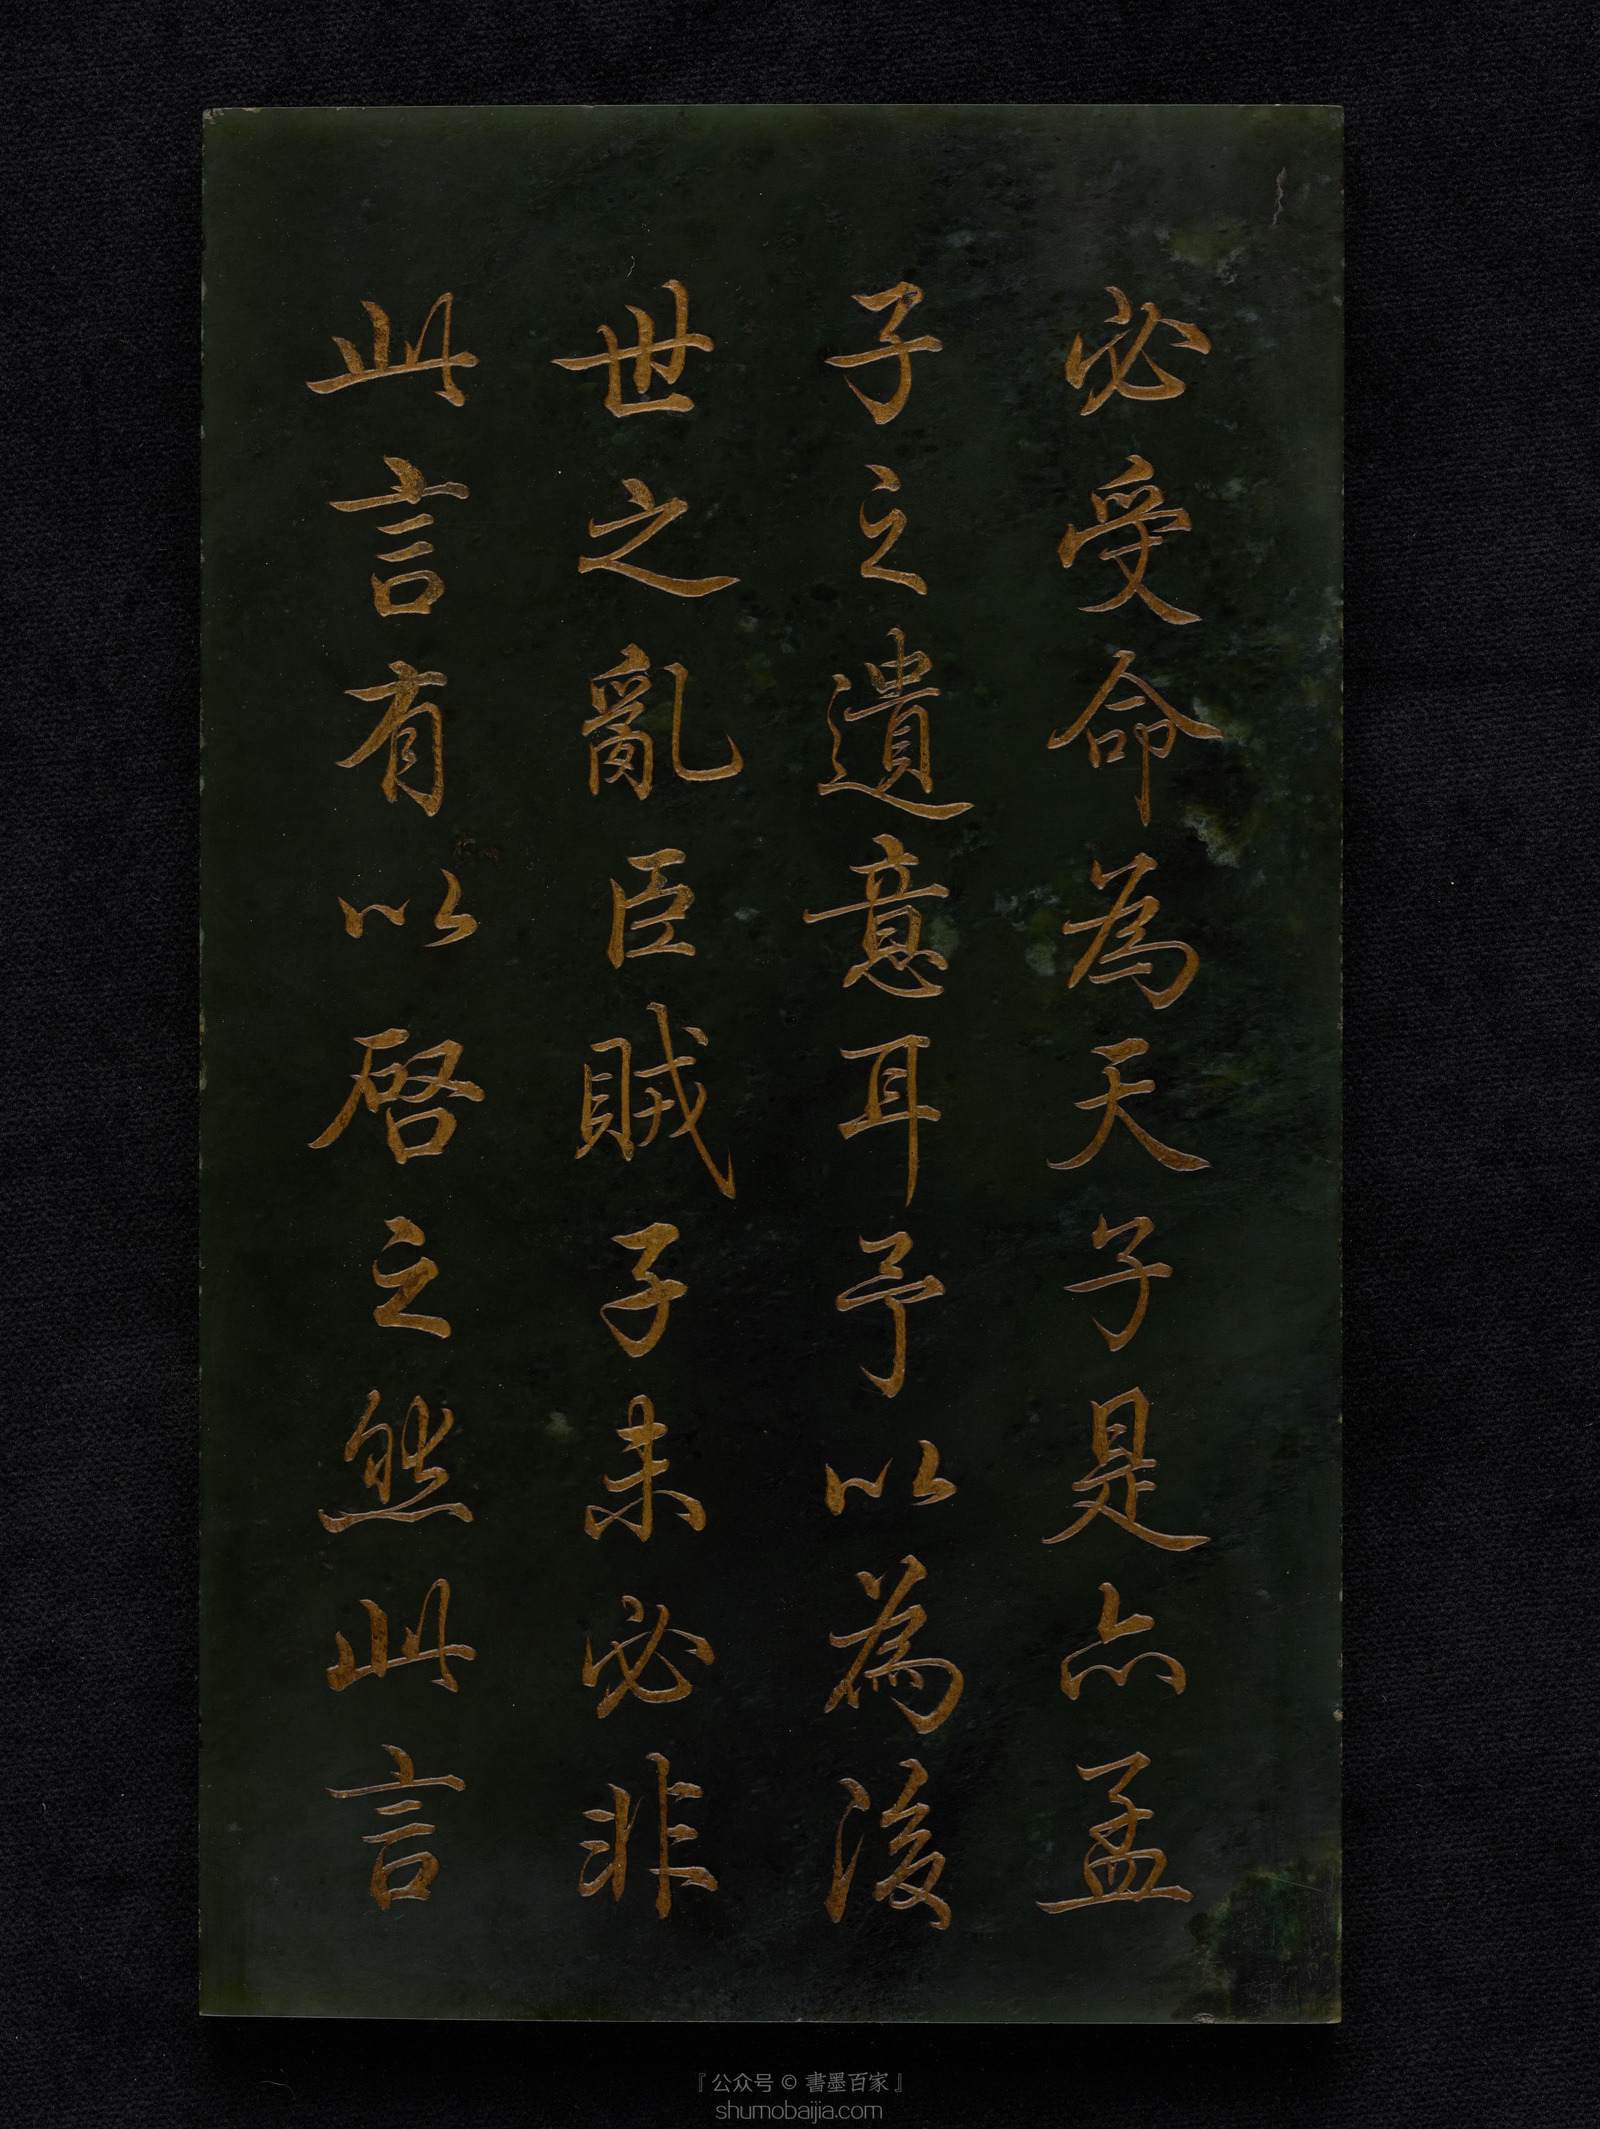 必受命為天子是亦孟
子之遺意耳予以為後
世之亂臣賊子未必非
此言有以啓之然此言
『公众号 © 書墨百家』
shumobaijia.com